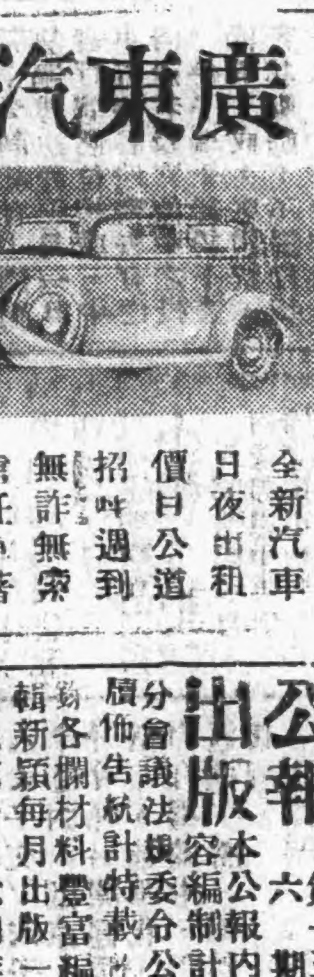 廣東汽
全新汽車
日夜出租
價目公道
招呼週到
無詐無索
公報
出版
六期
本公報內
容編制計
分會議法規委令公
牘佈告統計特載
各欄材料豐富編
輯新穎每月出版一